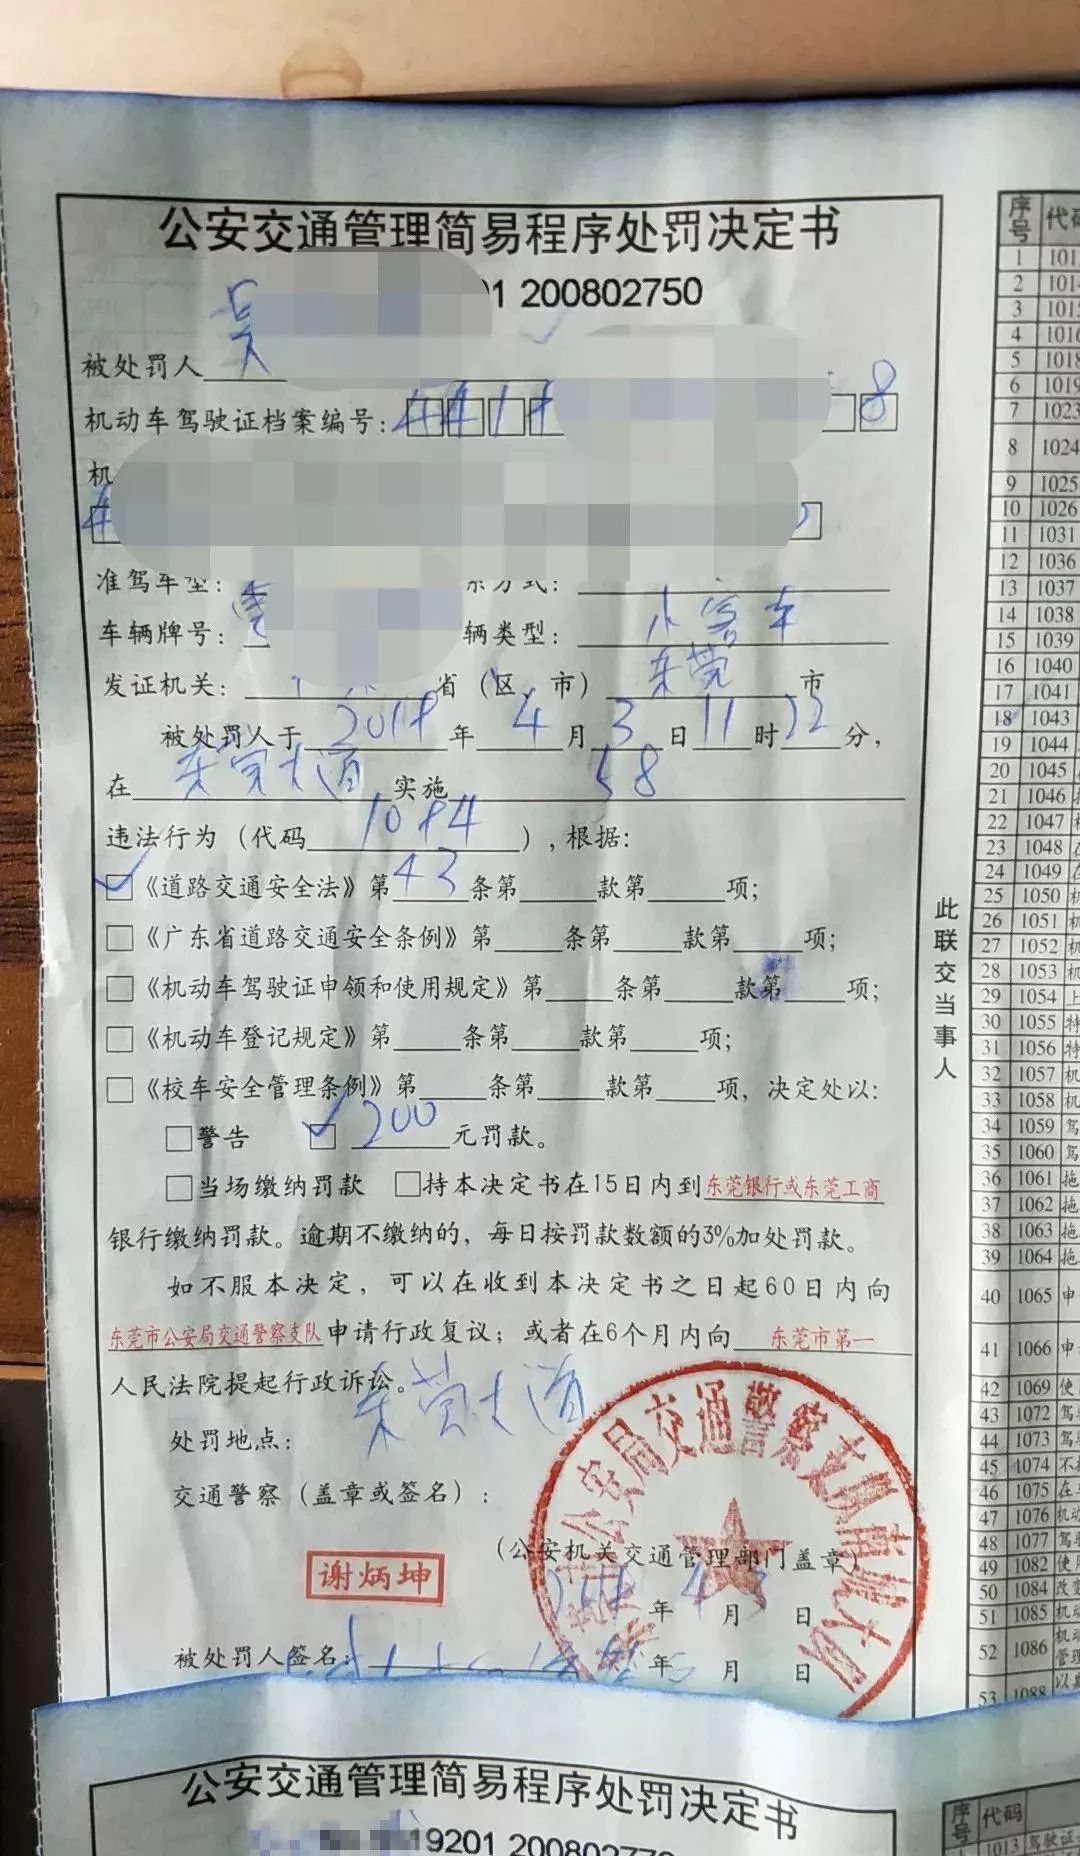 公安交通管理简易程序处罚决定书
01 200802750
被处罚人 吴
机动车驾驶证档案编号: 441 8
机
4
准驾车型: 东方式:
车辆牌号: 粤 辆类型: 小客车
发证机关: 省(区、市) 东莞 市
被处罚人于 2019 年 4 月 3 日 11 时 22 分,
在 东莞大道 实施 58
违法行为(代码 1094 ),根据:
《道路交通安全法》第 43 条第 款第 项;
《广东省道路交通安全条例》第 条第 款第 项;
《机动车驾驶证申领和使用规定》第 条第 款第 项;
《机动车登记规定》第 条第 款第 项;
《校车安全管理条例》第 条第 款第 项, 决定处以:
警告 200 元罚款。
当场缴纳罚款 持本决定书在15日内到东莞银行或东莞工商
银行缴纳罚款。逾期不缴纳的, 每日按罚款数额的3%加处罚款。
如不服本决定, 可以在收到本决定书之日起60日内向
东莞市公安局交通警察支队申请行政复议; 或者在6个月内向 东莞市第一
人民法院提起行政诉讼。
处罚地点: 东莞大道
交通警察(盖章或签名):
(公安机关交通管理部门盖章)
谢炳坤
年 4 月 3 日
被处罚人签名: 年 月 日
公安局交通警察支队 大队
此联交当事人
序号 代码
1 101
2 101
3 1015
4 1016
5 1018
6 1019
7 1023
8 1024
9 1025
10 1026
11 1031
12 1036
13 1037
14 1038
15 1039
16 1040
17 1041
18 1043
19 1044
20 1045
21 1046
22 1047
23 1048
24 1049 在
25 1050 机
26 1051 机
27 1052 机
28 1053 机
29 1054 上
30 1055 特
31 1056 特
32 1057 机
33 1058 机
34 1059 驾
35 1060 驾
36 1061 拖
37 1062 拖
38 1063 拖
39 1064 拖
40 1065 申
41 1066 申请
42 1069 使
43 1072 驾
44 1073 驾
45 1074 不
46 1075 在
47 1076 机动
48 1077 驾
49 1082 使
50 1084 改变
51 1085 机动
52 1086 机动 管理
53 1088 以
公安交通管理简易程序处罚决定书
19201 200802770
序号 代码
1013 驾驶证